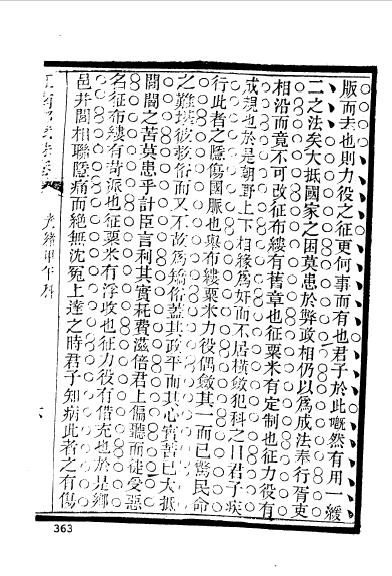 版而夫也則力役之征更何事而有也君子於此嘅然有用一緩
二之法矣大抵國家之困莫患於弊政相仍以爲成法奉行胥吏
相沿而竟不可改征布縷有舊章也征粟米有定制也征力役有
成規也於是朝野上下相緣爲好而不居橫斂犯科之日君子疾
行此者之隱傷國脈也與布縷粟米力役偶斂其一而已驚民命
之難堪彼救俗而又不敢爲矯俗蓋其政平而其心實苦已大抵
閭閻之苦莫患乎計臣言利其實耗費滋倍君上偏聽而徒受惡
名征布縷有苛派也征粟米有浮收也征力役有借充也於是鄉
邑井閭相聯隱痛而絕無沈冤上達之時君子知病此者之有傷
光緒甲午科
363